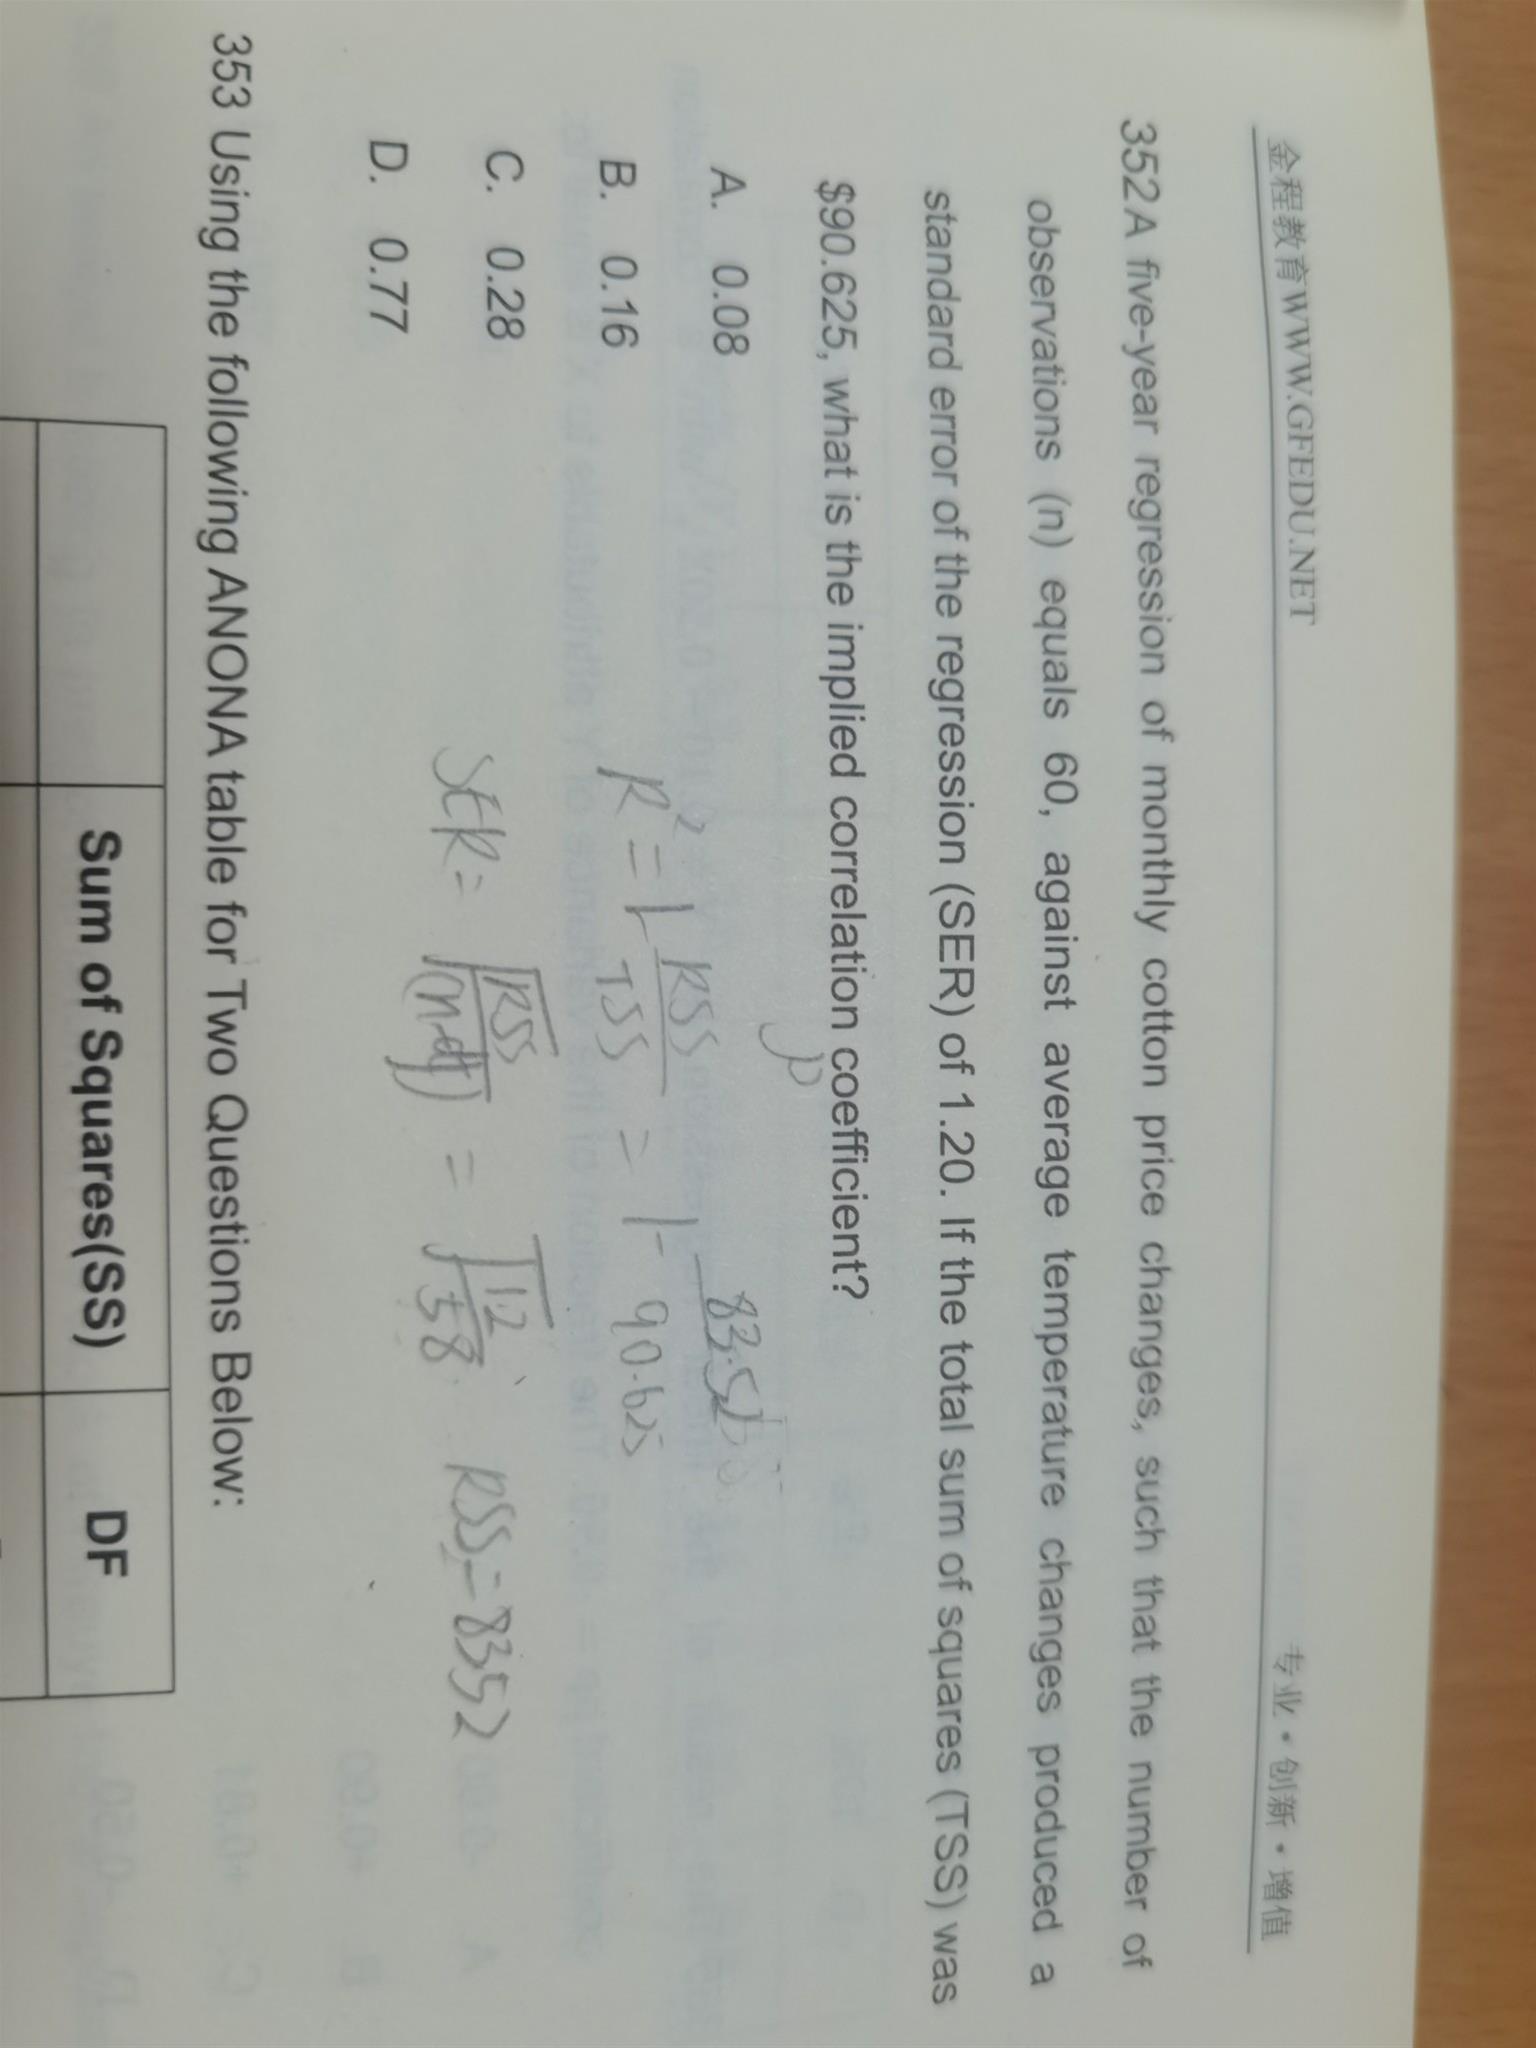 金程教育WWW.GFEDU.NET 专业·创新·增值
352A five-year regression of monthly cotton price changes, such that the number of
observations (n) equals 60, against average temperature changes produced a
standard error of the regression (SER) of 1.20. If the total sum of squares (TSS) was
$90.625, what is the implied correlation coefficient?
ρ
A. 0.08
B. 0.16
C. 0.28
D. 0.77
R² = 1 - RSS/TSS = 1 - 83.52/90.625
SER = √RSS/(n-df) = √1.2/58 RSS = 8352
353 Using the following ANONA table for Two Questions Below:
Sum of Squares(SS) DF